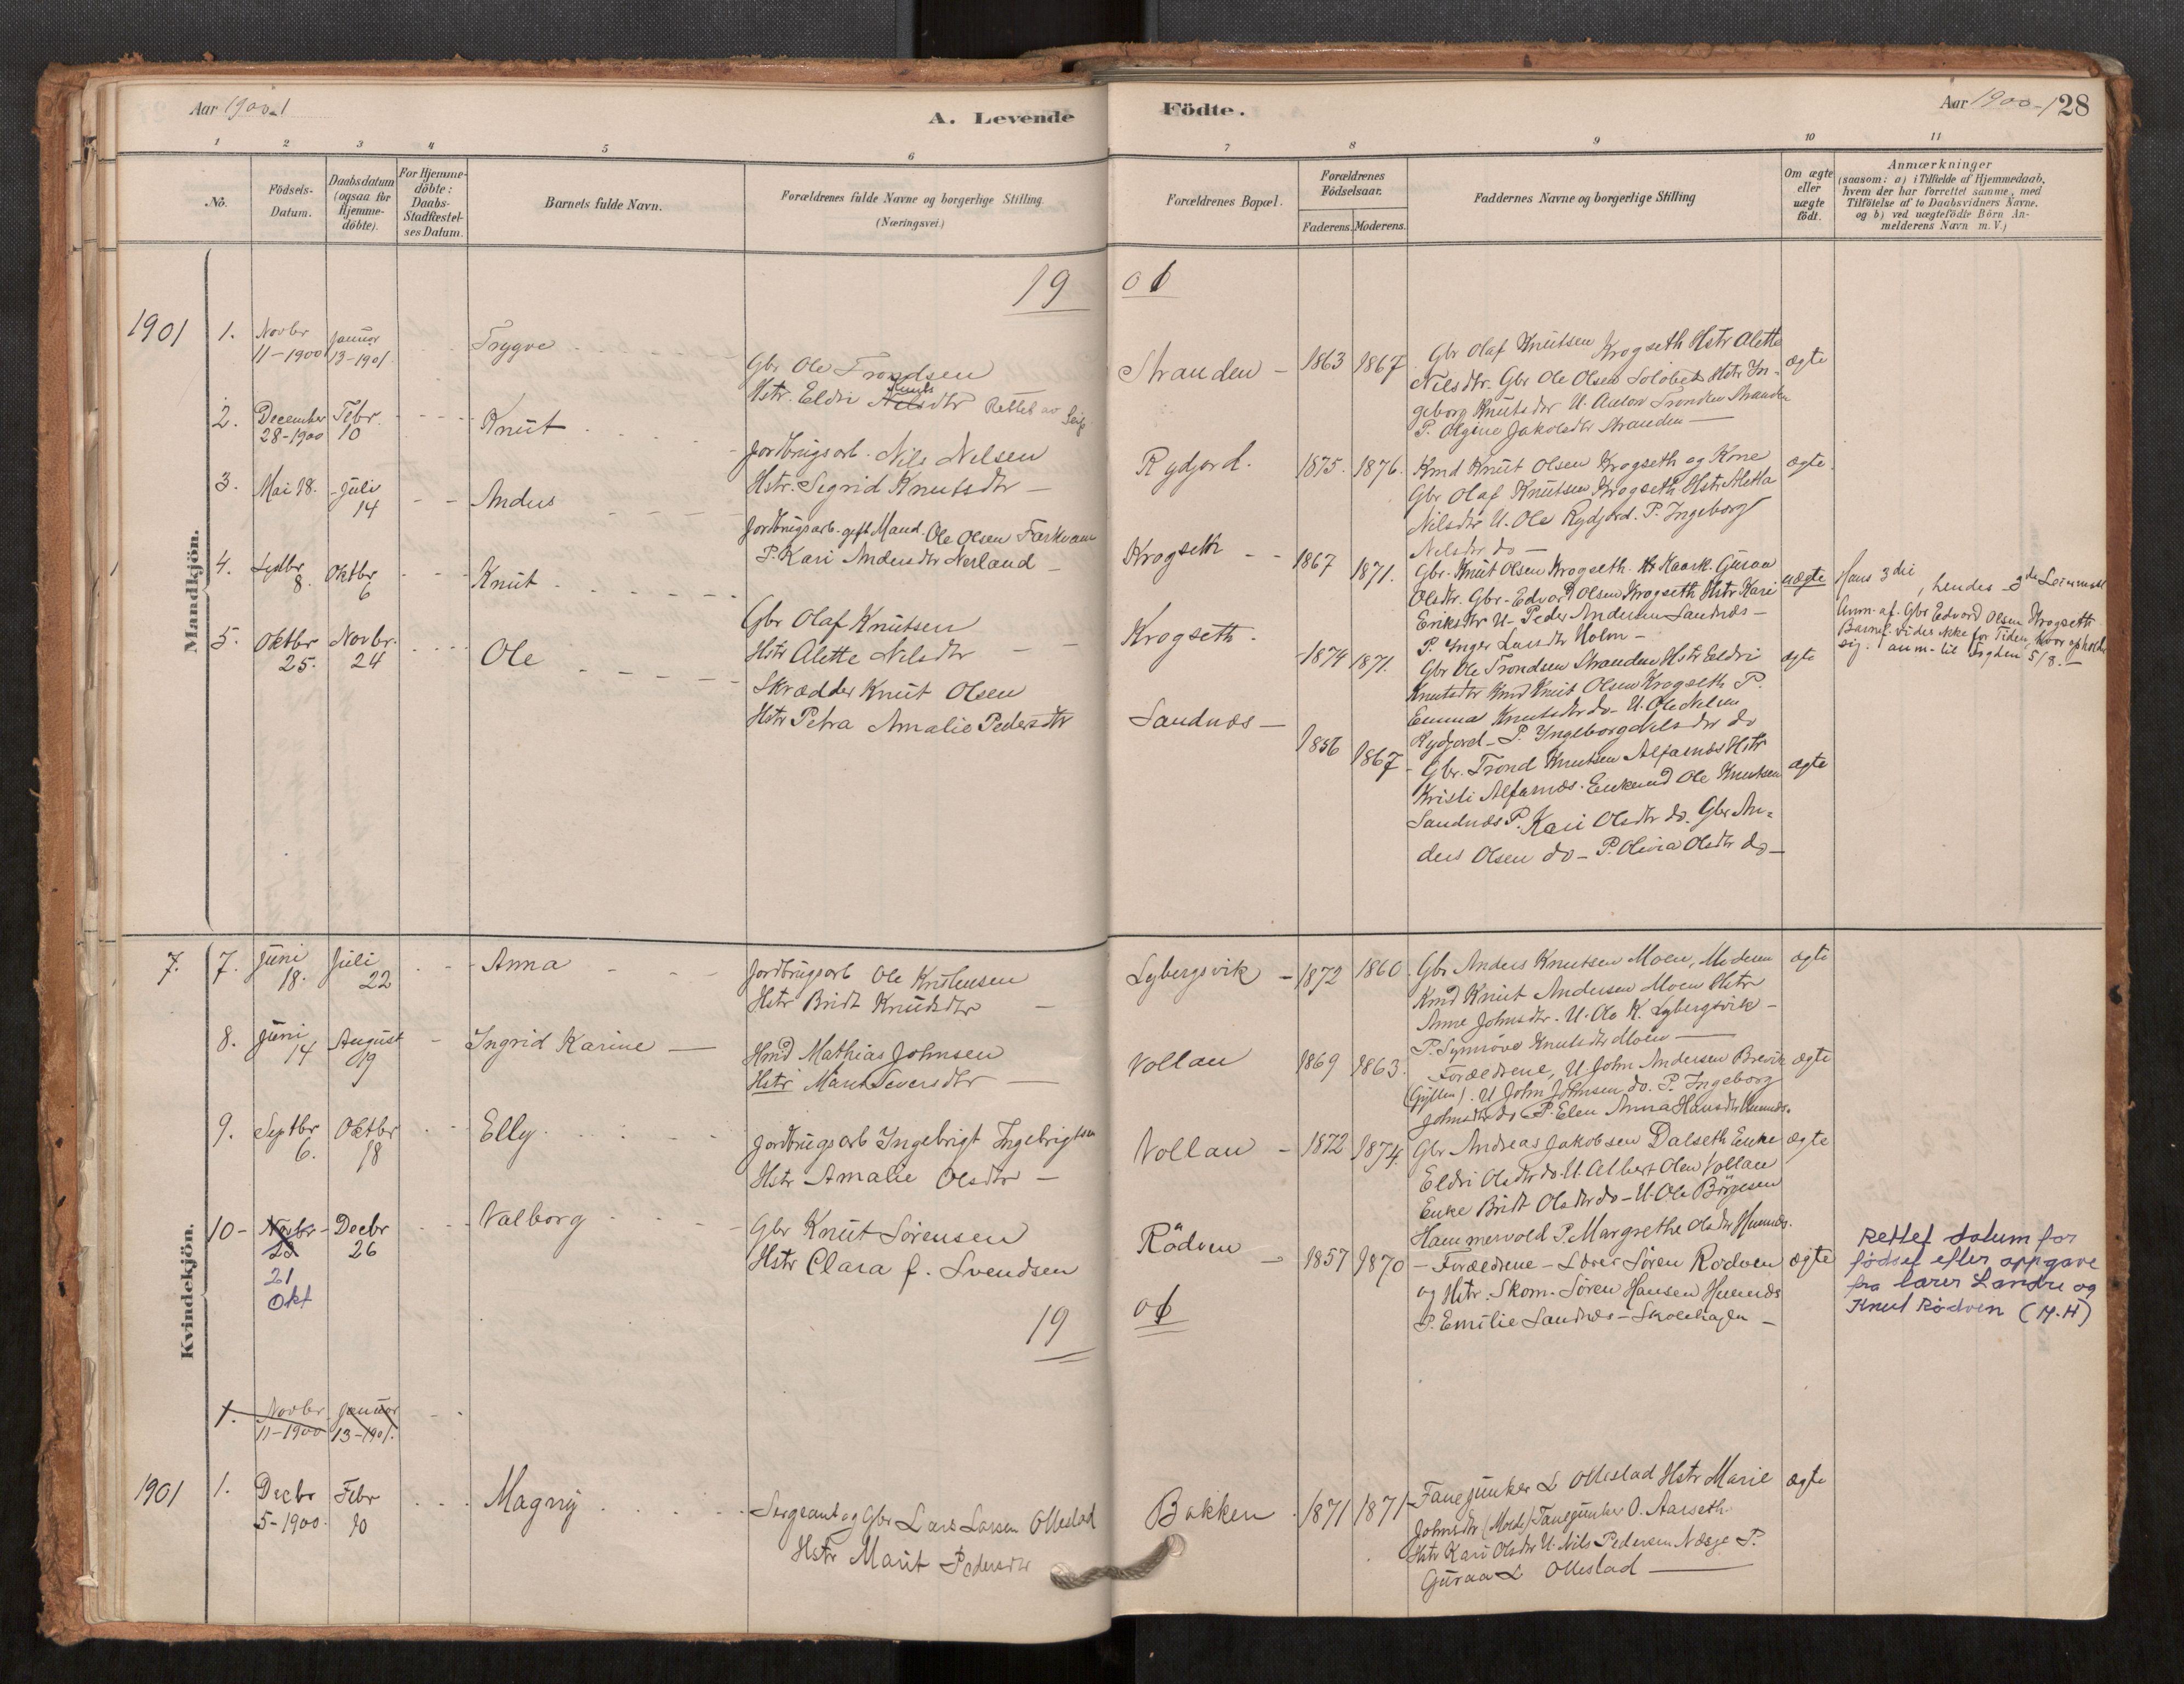 Aar 1900-1
A. Levende
Födte.
Aar 1900-1 28
1 2 3 4 5 6 7 8 9 10 11
No.
Födsels-
Datum.
Daabsdatum
(ogsaa for
Hjemme-
döbte).
For Hjemme-
döbte:
Daabs-
Stadfæstel-
ses Datum.
Barnets fulde Navn.
Forældrenes fulde Navne og borgerlige Stilling.
(Næringsvei.)
Forældrenes Bopæl.
Forældrenes
Födselsaar.
Faderens. Moderens.
Faddernes Navne og borgerlige Stilling
Om ægte
eller
uægte
födt.
Anmærkninger
(saasom: a) i Tilfælde af Hjemmedaab,
hvem der har forrettet samme, med
Tilföielse af to Daabsvidners Navne,
og b) ved uægtefödte Börn An-
melderens Navn m. V.)
Mandkjön.
19 01
1901 1. Novbr 11-1900 Januar 13-1901. Trygve
Gbr Ole Trondsen
Hstr. Eldri Nilsdtr Knuts Rettet av
Stranden - 1863 1867
Gbr Olaf Knutsen Krogseth Hstr Alette
Nilsdtr. Gbr Ole Olsen Solobet Hstr In-
geborg Knutsdtr U. Anton Trondsen Stranden
P. Olgine Jakobsdtr Stranden -
ægte
2. December 28-1900 Febr. 10 Knut
Jordbrugsarb. Nils Nelsen
Hstr. Sigrid Knutsdtr -
Rydjord. 1875. 1876.
Kmd Knut Olsen Krogseth og Kone
Gbr Olaf Knutsen Krogseth Hstr Aletta
Nilsdtr U. Ole Rydjord. P. Ingeborg
Nelsdtr do -
ægte.
3. Mai 18. Juli 14 Anders
Jordbrugsarb. gift Mand. Ole Olsen Farkvam
P. Kari Andersdtr Nerland -
Krogseth - - 1867 1871.
Gbr. Knut Olsen Krogseth. Guraa
Olsdtr. Gbr. Edvard Olsen Krogseth Hstr Kari
Eriksdtr U. Peder Andersen Sandnæs -
P. Inger Larsdtr Holm -
uægte
Hans 3die, hendes 3de Leiermaal
Anm. af Gbr Edvard Olsen Krogseth
Barnef. vides ikke for Tiden, hvor opholder
sig. anm. til Fogden 5/8. -
4. Septbr 8. Oktbr 6 Knut
Gbr Olaf Knutsen
Hstr Alette Nilsdtr - -
Krogseth. 1874 1871.
Gbr Ole Trondsen Stranden Hstr Eldri
Knutsdtr Kmd Knut Olsen Krogseth P.
Emma Knutsdtr do- U. Ole Nelsen
Rydjord - P. Ingeborg Nelsdtr do
ægte
5. Oktbr 25. Novbr. 24 Ole
Skrædder Knut Olsen
Hstr Petra Amalie Pedersdtr
Sandnæs - 1856 1867
Gbr. Trond Knutsen Alfarnæs Hstr
Kristi Alfarnæs. Enkemd Ole Knutsen
Sandnæs P. Kari Olsdtr do. Gbr An-
ders Olsen do - P. Olivia Olsdtr do -
ægte
Kvindekjön.
7. 7. Juni 18. Juli 22 Anna
Jordbrugsarb Ole Kristensen
Hstr Brit Knutsdtr -
Lybergsvik - 1872 1860
Gbr Anders Knutsen Moen, Moderen
Kmd Knut Andersen Moen Hstr
Anne Johnsdtr. U. Ole K. Lybergsvik -
P. Synnöve Knutsdtr Moen -
ægte
8. Juni 14 August 19 Ingrid Karine -
Hmd Mathias Johnsen
Hstr Marit Seversdtr -
Vollan 1869 1863.
Forældrene, U. John Andersen Brevik
(Gyllen). U John Johnsen do. P. Ingeborg
Johnsdtr do P. Elen Anna Hansdtr Hunnds.
ægte
9. Septbr 6. Oktbr 18 Elly
Jordbrugsarb Ingebrigt Ingebrigtsen
Hstr Amalie Olsdtr -
Vollan - 1872 1874.
Gbr Andreas Jakobsen Dalseth Enke
Eldri Olsdtr do. U. Albert Olsen Vollan
Enke Brit Olsdtr do - U. Ole Börgesen
Hammervold P. Margrethe Olsdtr Hunnds.
ægte
10 - Novbr 23 21 Okt Decbr 26 Valborg
Gbr Knut Sörensen
Hstr Clara f. Svendsen
Rödven - 1857 1870
- Forældrene - Lærer Sören Rodven
og Hstr. Skom. Sören Hansen Hunnds
P. Emilie Sandnæs - Skolehagen -
ægte
Rettet datum for
fødsel efter oppgave
fra lærer Landre og
Knut Rødven (M.H)
19 01
1. Novbr 11-1900 Januar 13-1901.
1901 1. Decbr 5-1900. Febr 10 Magny
Sergeant og Gbr Lars Larsen Ollestad
Hstr Marit Pedersdtr
Bakken 1871 1871
Fanejunker L Ollestad Hstr Marie
Johnsdtr (Molde) Fanejunker O. Aarseth
Hstr Kari Olsdtr U. Nils Pedersen Næsje P.
Guraa L Ollestad -
ægte